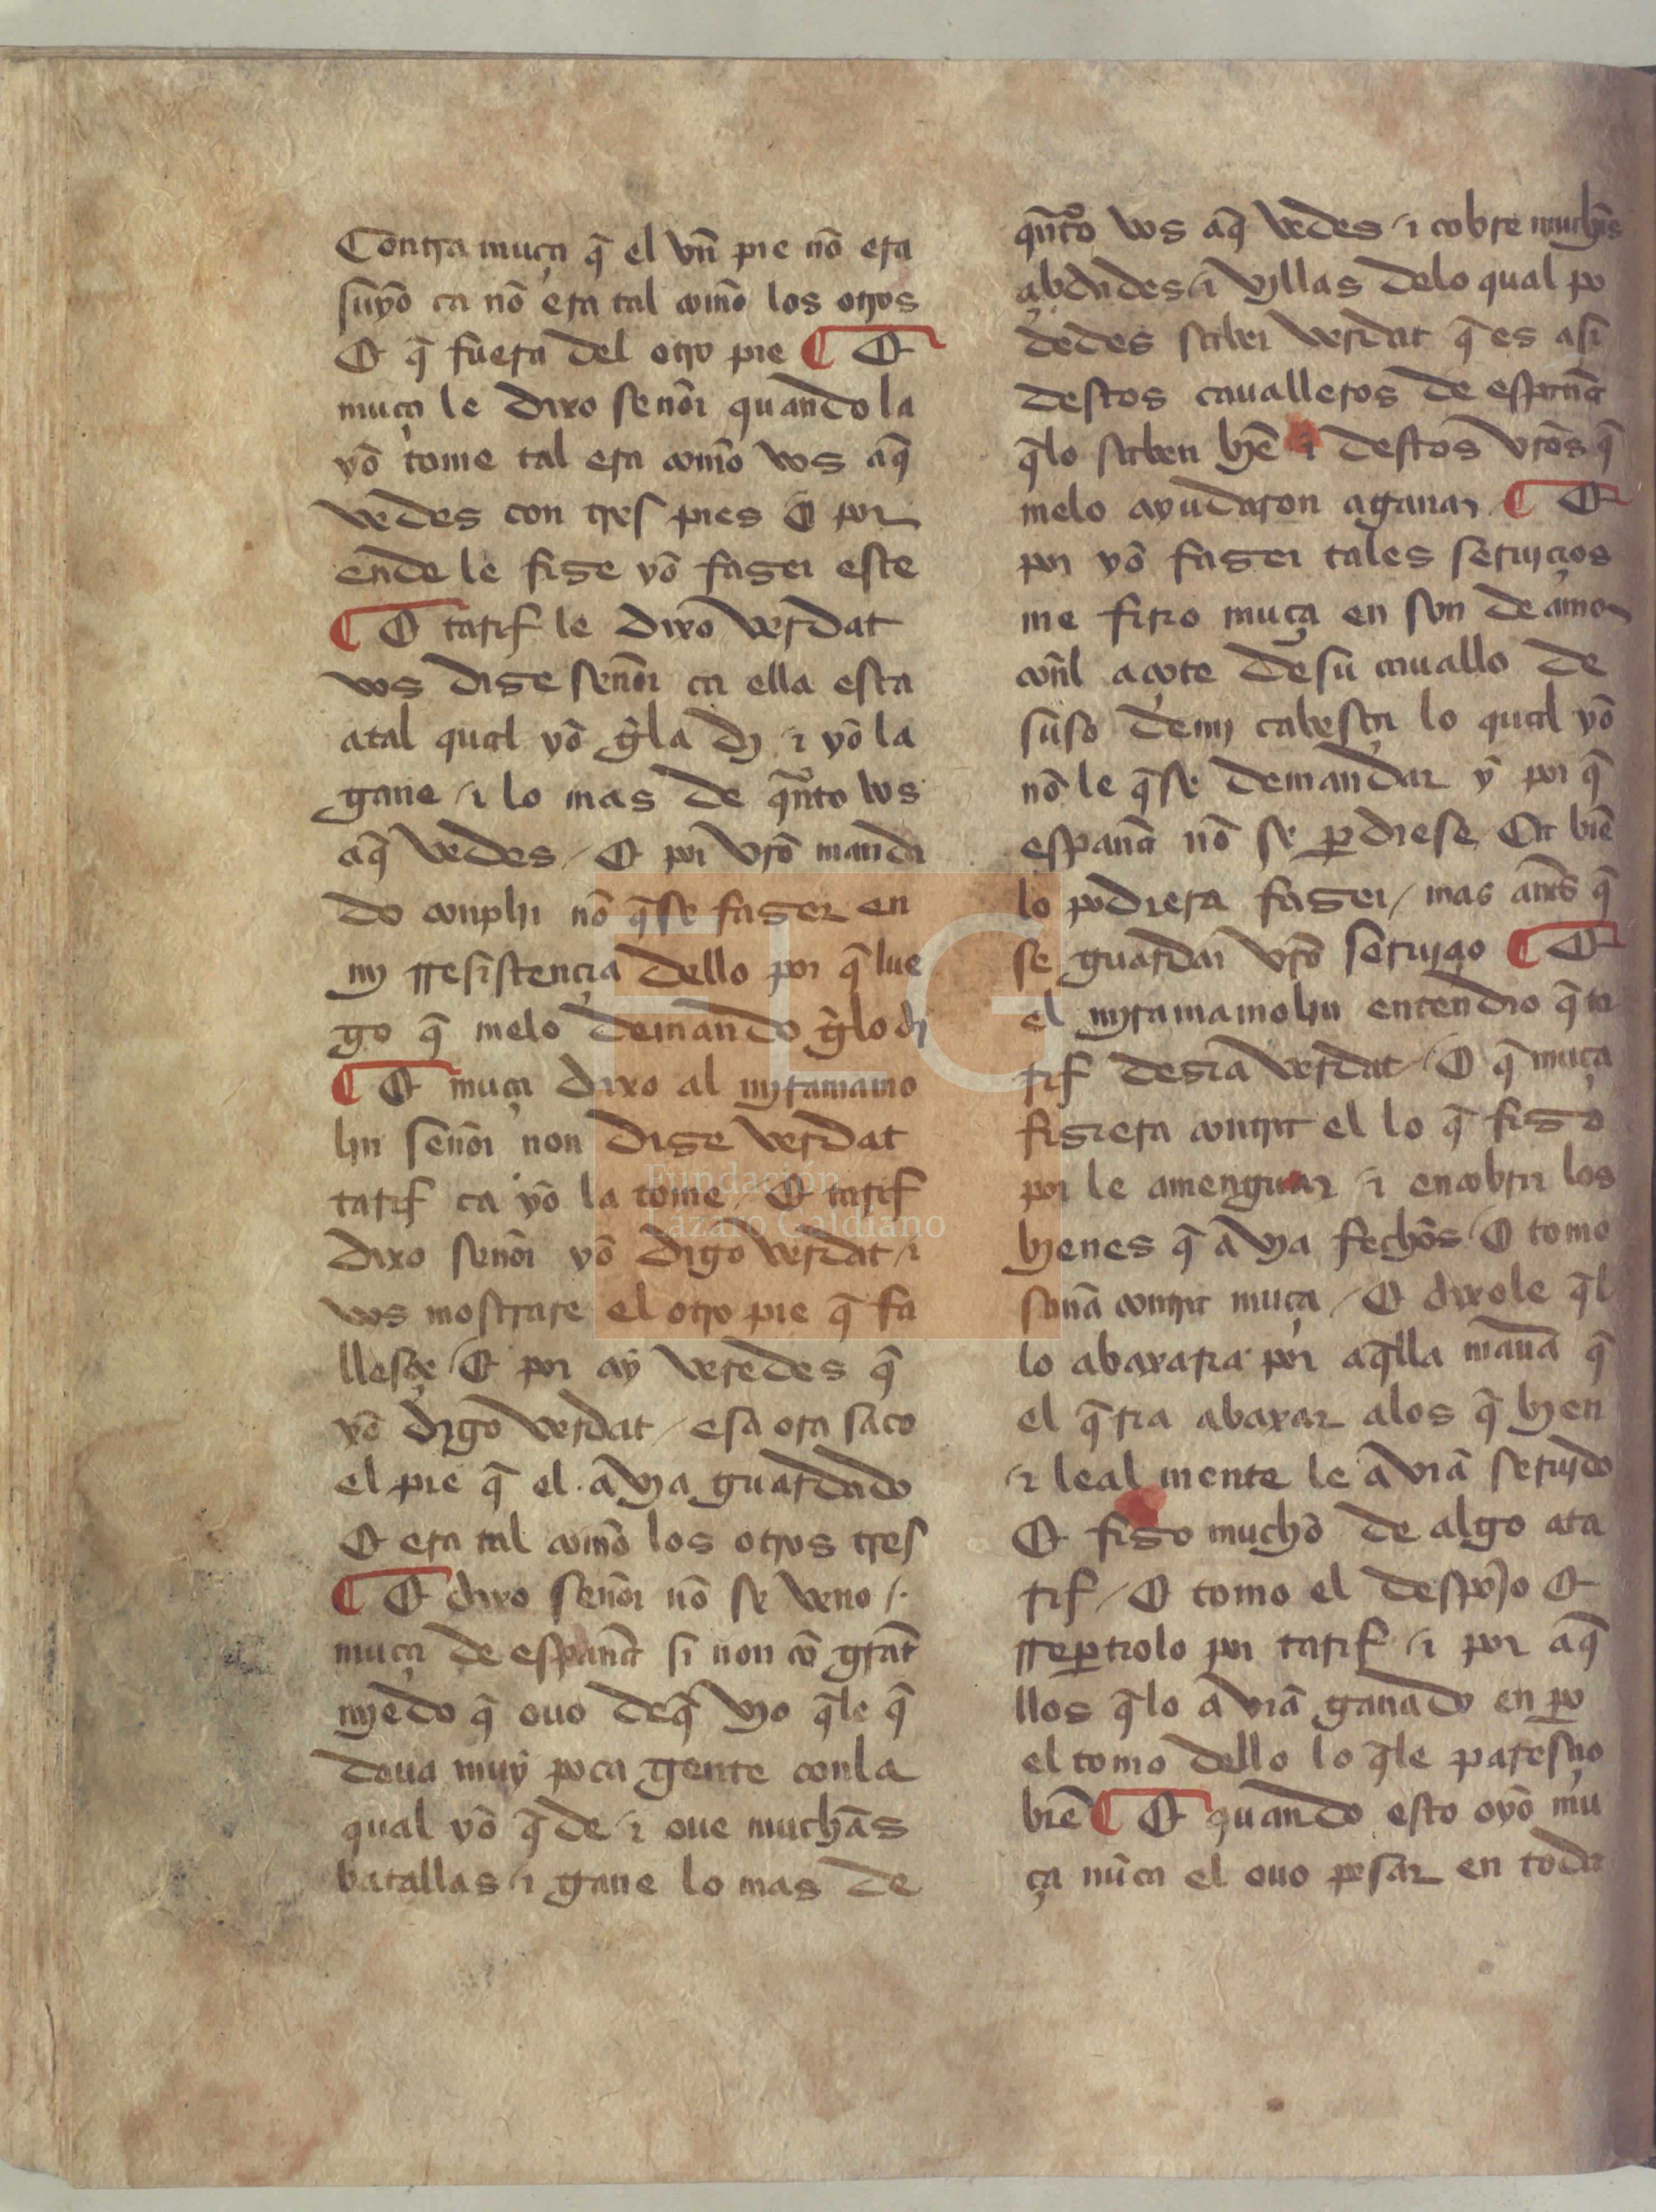 Contra muça q̃ el vn̄ pie nō era
suyō ca nō era tal com̄o los otros
Et q̃ fuera del otro pie ¶ Et
muça le dixo sen̄or quando la
yō tome tal era com̄o vos aq̃
vedes con tres pies E por
ende le fise yō faser este
¶ E tarif le dixō verdat
vos dise sen̄or ca ella esta
atal qual yō gela di ⁊ yō la
gane / ⁊ lo mas de q̃nto vos
aq̃ vedes / Et por vr̄o manda
do conpli nō q̃se faser en
my rresistençia dello por q̃ lue
go q̃ melo demando gelo di
¶ Et muça dixo al myramamo
lin sen̄or non dise verdat
tarif ca yō la tome / Et tarif
dixo sen̄or yō digo verdat / ⁊
vos mostrare el otro pie q̃ fa
llesçe / Et por aȳ veredes q̃
yō digō verdat / esa ora saco
el pie q̃ el avya guardado
Et era tal com̄o los otros tres
¶ Et dixo sen̄or nō se veno /.
muça de espan̄a si non cō grāt
myedo q̃ ouo deq̃ vyo q̃le q̃
daua muȳ poca gente conla
qual yō q̃de / ⁊ oue muchās
batallas ⁊ gane lo mas de
q̃nto vos aq̃ vedes / ⁊ cobre muchās
çibdades ⁊ villas delo qual po
dedes saber verdat q̃ es asi
destos caualleros de espan̄a
q̃lo saben byē ⁊ destos vr̄os q̃
melo ayudaron aganar ¶ Et
por yō faser tales seruiçios
me firio muça en son de amor
con̄l açote de su cauallo de
suso demy cabesça lo qual yō
nō le q̃se demandar ȳ por q̃
espan̄a nō se ꝑdiese Ca biē
lo podiera faser / mas antes q̃
se guardar vr̄o seruiçio ¶ Et
el myramamolin entendio q̃ ta
rif desia verdat / E q̃ muça
fisiera contra el lo q̃ fiso
por le amenguar / ⁊ encobrir los
byenes q̃ avya fechōs / E tomo
san̄a contra muça / E dixole q̃l
lo abaxaria por aq̃lla man̄a q̃
el q̃ria abaxar alos q̃ byen
⁊ leal mente le aviā seruido
Et fiso muchō de algo ata
rif / E tomo el despojo Et
rreꝑtiolo por tarif / ⁊ por aq̃
llos q̃lo aviā ganado en pō
el tomo dello lo q̃le paresçio
biē ¶ Et quando esto oyō mu
ça nūca el ouo pesar en toda
Fundación
Lázaro Galdiano